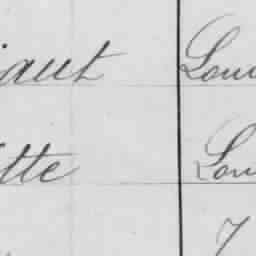 jaut Lou
tte Lou